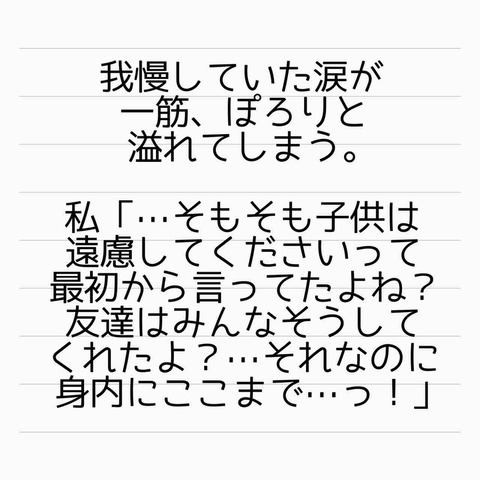 我慢していた涙が
一筋、ぽろりと
溢れてしまう。
私「…そもそも子供は
遠慮してくださいって
最初から言ってたよね？
友達はみんなそうして
くれたよ？…それなのに
身内にここまで…っ！」